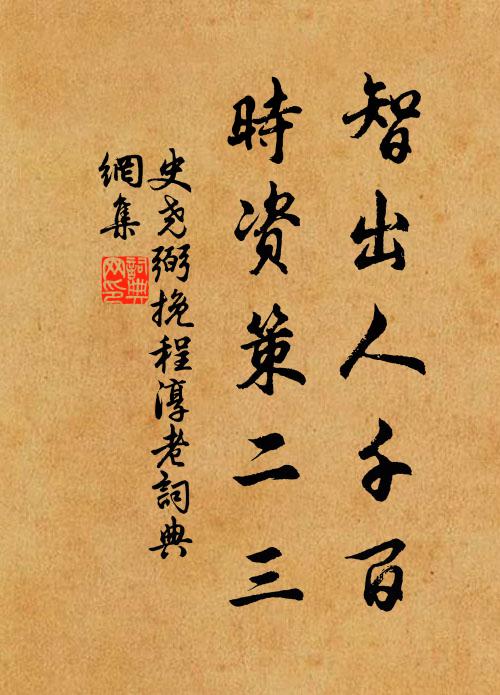 智出人千百
時资策二三
史尧弼挽程淳老詞典
網集
詞典網印